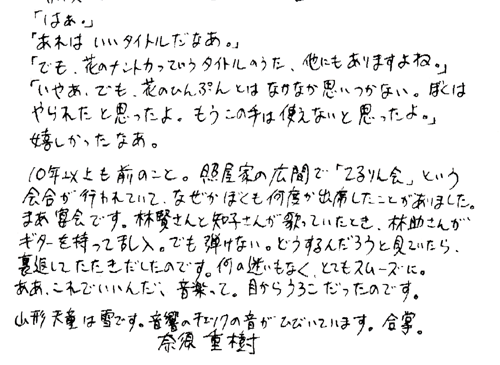 「はぁ。」
「あれは いいタイトルだなあ。」
「でも、花のナントカっていうタイトルのうた、他にもありますよね。」
「いやあ、でも、花のひんぷんとは なかなか思いつかない。ぼくは
やられたと思ったよ。もうこの手は使えないと思ったよ。」
嬉しかったなあ。
10年以上も前のこと。照屋家の広間で「てるりん会」という
会合が行われていて、なぜかぼくも何度か出席したことがありました。
まあ宴会です。林賢さんと知子さんが歌っていたとき、林助さんが
ギターを持って乱入。でも弾けない。どうするんだろうと見ていたら、
裏返してたたきだしたのです。何の迷いもなく、とてもスムーズに。
ああ、これでいいんだ、音楽って。目からうろこだったのです。
山形 天童は雪です。音響のチェックの音がひびいています。合掌。
奈須 重樹